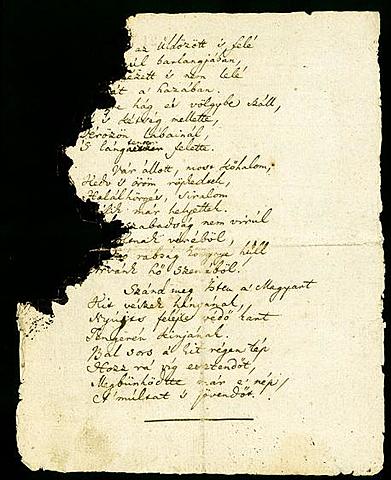 az üldözött 's felé
úl barlangjában,
zett 's nem lelé
át a' hazában.
hág és völgybe száll,
's kétség mellette,
érözön lábainál,
'S lángtenger felette.
Vár állott, most kőhalom,
Kedv 's öröm röpkedtek,
Halálhörgés, siralom
lik már helyettek.
szabadság nem virúl
oltnak véréből,
zó rabság könnye hull
árvánk hő szeméből.
Szánd meg Isten a' Magyart
Kit vészek hányának,
Nyújts feléje védő kart
Tengerén kínjának.
Bal sors a' kit régen tép
Hozz rá víg esztendőt,
Megbünhödte már e' nép
A' múltat 's jövendőt.